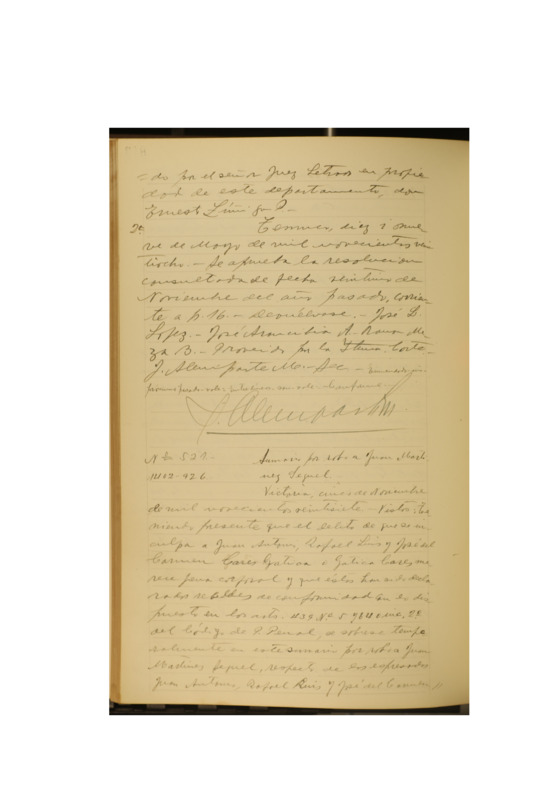 = do por el señor Juez Letrado en propie
dad de este departamento, don
Ernesto
2a Temuco, diez i nue
ve de Mayo de mil novecientos vein
tiocho. - Se aprueba la resolucion
consultada de fecha veintiuno de
Noviembre del año pasado, corrien
te a f. 16. - Devuélvase. - José L.
Lopez. - José A. - Ramon Me
za B. - Proveido por la Iltma. Corte. -
J. Alemparte M. - Sec. -
Conforme. -
J. Alemparte M.
N o 521. - Sumario por robo a Juan Martí
nez Seguel.
Victoria, cinco de Noviembre
de mil novecientos veintisiete - Vistos: Te
niendo presente que el delito de que se in
culpa a Juan Antonio, Rafael Luis y José del
Carmen Gatica o Gatica me
rece pena corporal y que estos han sido decla
rados rebeldes de conformidad con lo dis
puesto en los arts. 439 No 5
del Código de P. Penal, se sobresee tempo
ralmente en este sumario por robo a Juan
Martínez Seguel, respecto de los expresados
Juan Antonio, Rafael Luis y José del Carmen